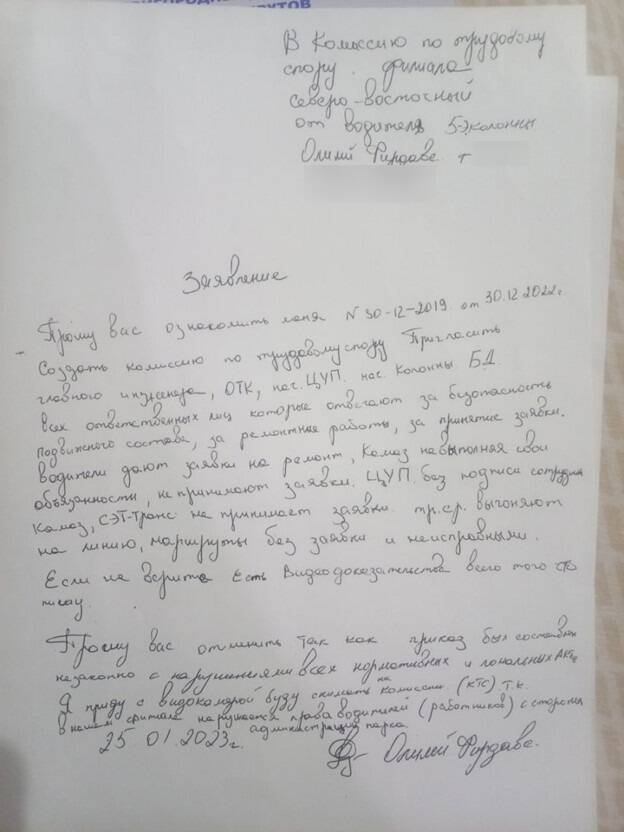 В Комиссию по трудовому
спору. филиала
Северо-восточный
от водителя 5-Эколонны
Олимй Фирдавс т
Заявление
Прошу вас ознакомить меня N 30-12-2019. от 30.12.2022г.
Создать комиссию по трудовому спору Пригласить
главного инженера, ОТК, нас. ЦУП. нас. Колонны БД.
всех ответственных лиц которые отвечают за безопасность
подвижного состава, за ремонтные работы, за принятие заявки.
водители дают заявки на ремонт, Камаз на выполняя свои
объязанности, не принимают заявки. ЦУП. без подписи сотрудника
Камаз, СЭТ-Транс не принимает заявки. тр.ср. выгоняют
на линию, маршруты без заявки и неисправными.
Если не верите есть Видеодоказательства всего того что
писал.
Прошу вас отменить так как приказ был составлен
незаконно с нарушениями всех нормативных и локальных
Я приду с видокамерой буду снимать на комиссии. (КТС) т.к.
в нашем филиале нарушается права водителей (работников) с стороны
администраций парса.
25 01.2023г.
Олимй Фирдавс.